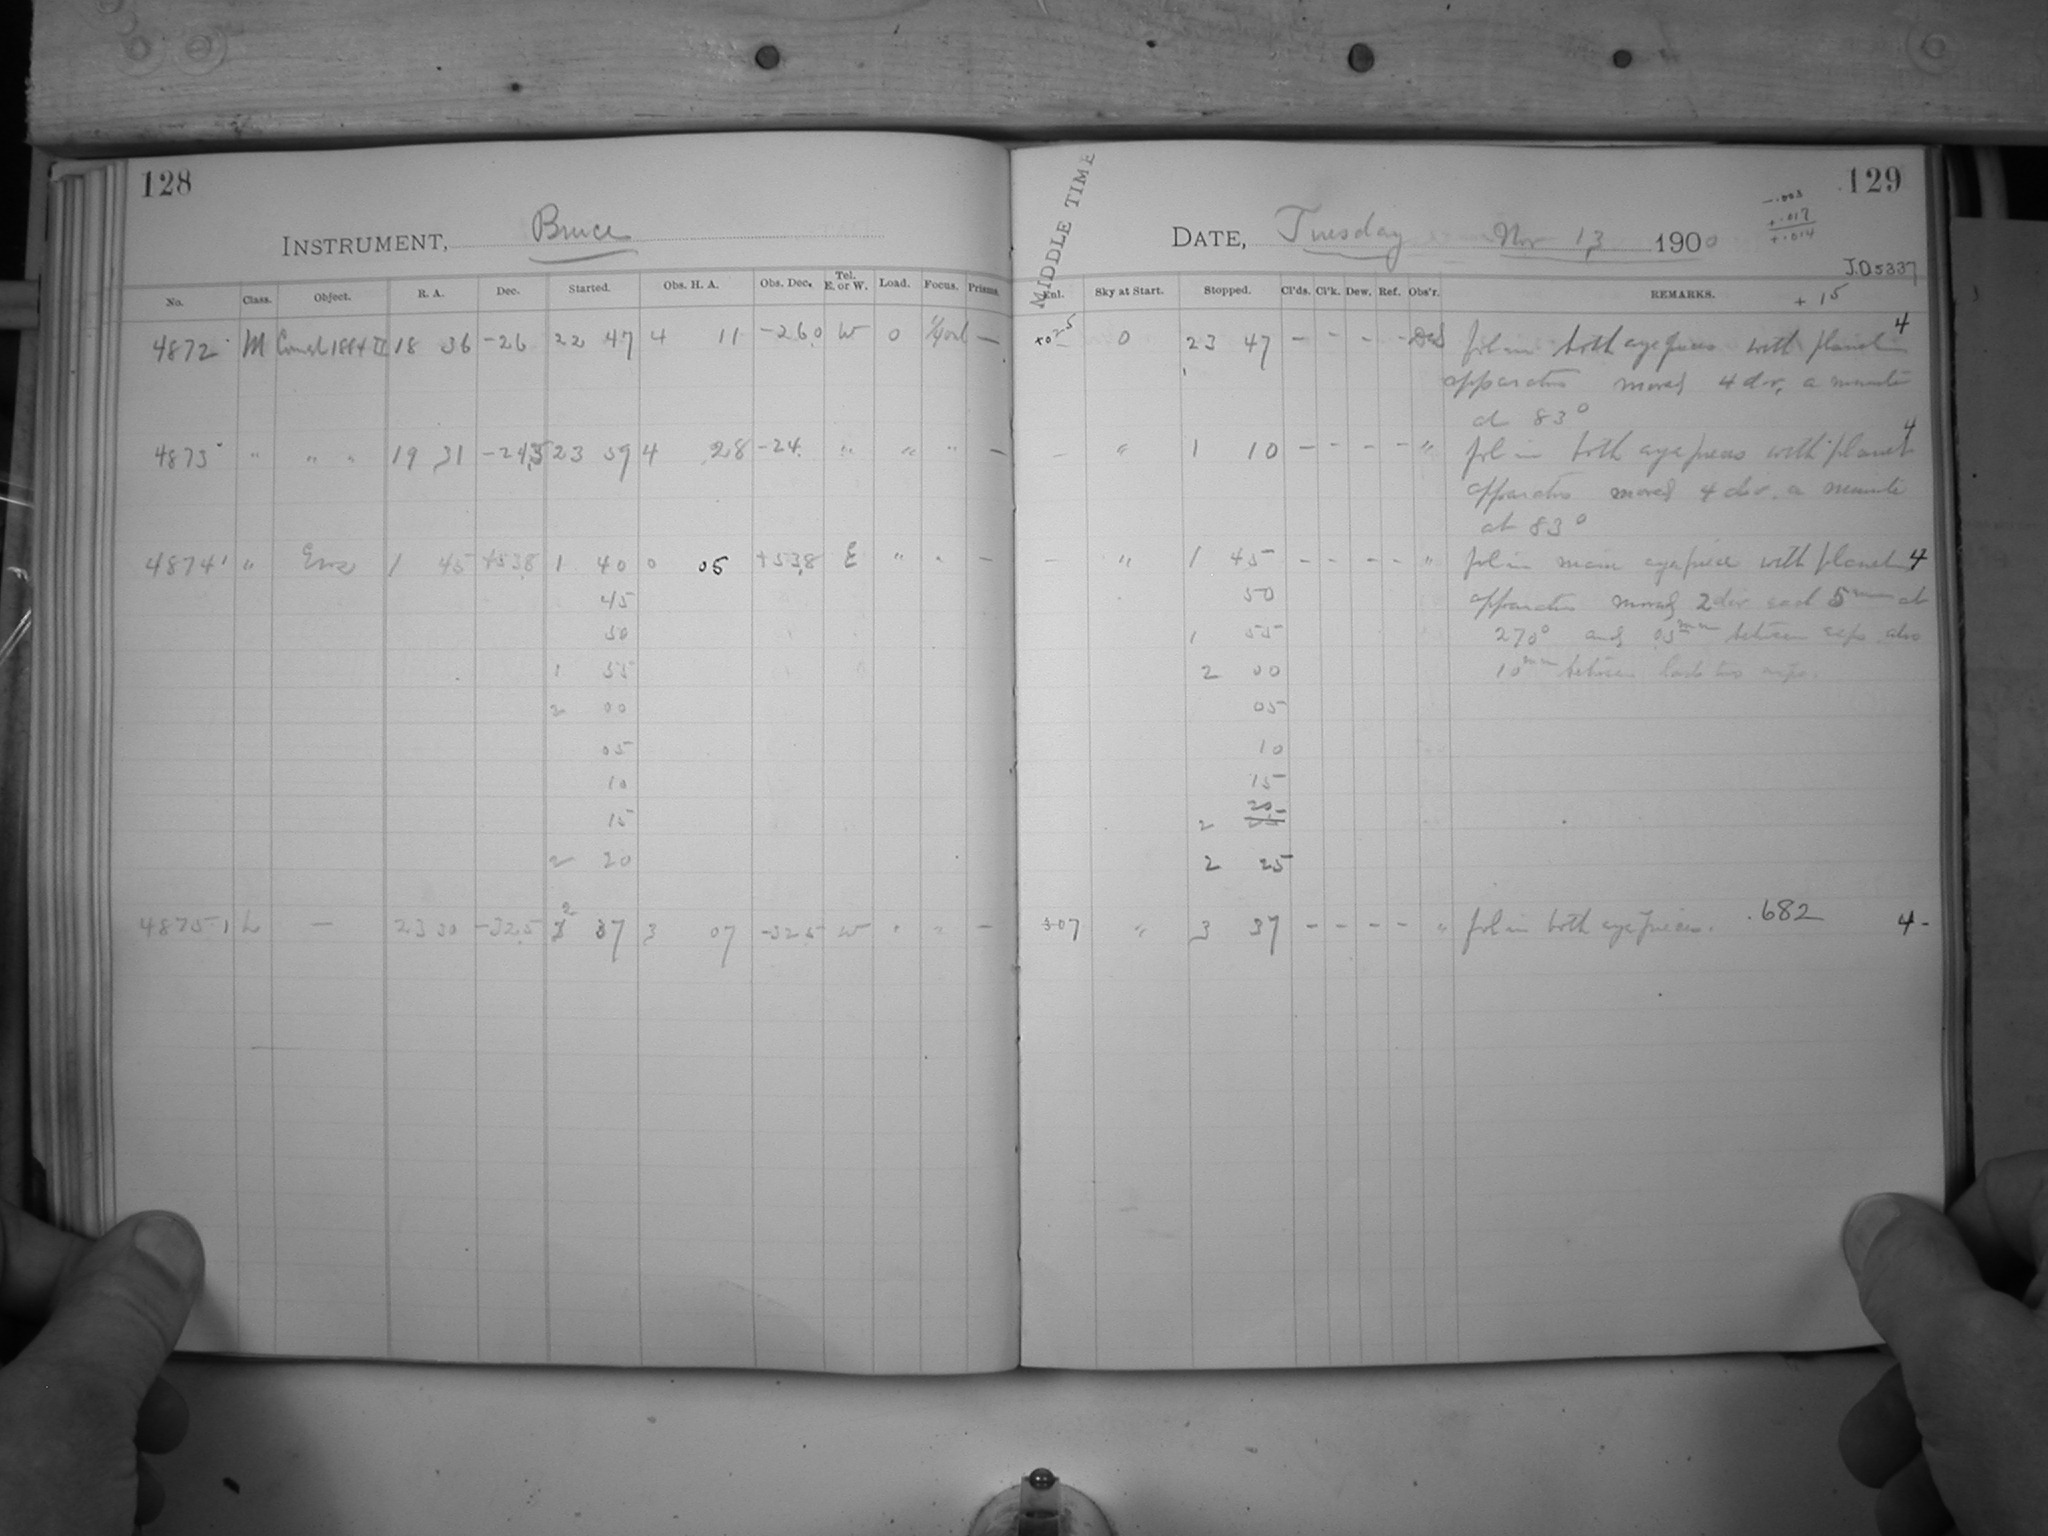 128
INSTRUMENT, Bruce
No. Class. Object. R. A. Dec. Started. Obs. H. A. Obs. Dec. Tel. E. or W. Load. Focus. Prisms.
4872 M Comet 1884 II 18 36 -26 22 47 4 11 -26.0 W 0 —
4873 " " " 19 31 -24.5 23 59 4 28 -24. " " " —
4874 " Eros 1 45 +53.8 1 40 0 05 +53.8 E " " —
45
50
1 55
2 00
05
10
15
2 20
4875 L — 23 30 -32.5 2 37 3 07 -32.5 W " " —
129
MIDDLE TIME
DATE, Tuesday Nov 13 1900
-.003
+.017
+.014
J.D 5337
+ 15
Enl. Sky at Start. Stopped. Cl'ds. Cl'k. Dew. Ref. Obs'r. REMARKS.
0 23 47 — — — — fol in both eyepieces with planet 4
apparatus moved 4 div. a minute
at 83°
— " 1 10 — — — — " fol in both eyepieces with planet 4
apparatus moved 4 div. a minute
at 83°
— " 1 45 — — — — " fol in main eyepiece with planet 4
apparatus moved 2 div each 5m at
50
1 55 270° and .05mm between exps. also
2 00 10mm between last two exps.
05
10
15
2 20
2 25
3.07 " 3 37 — — — — " fol in both eyepieces. .682 4-